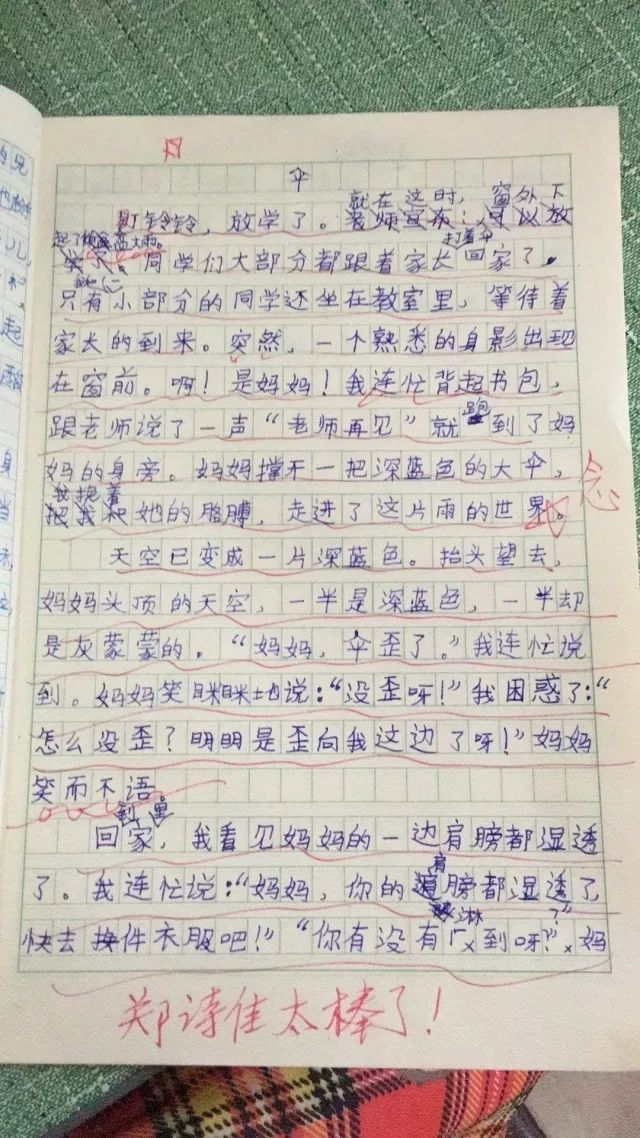 伞
就在这时，窗外下
叮铃铃，放学了。老师宣布：可以放
起了倾盆大雨。 打着伞
学了。同学们大部分都跟着家长回家了。
只有小部分的同学还坐在教室里，等待着
家长的到来。突然，一个熟悉的身影出现
在窗前。啊！是妈妈！我连忙背起书包，
跟老师说了一声“老师再见”就跑到了妈
妈的身旁。妈妈撑开一把深蓝色的大伞，
我挽着
把我和她的胳膊，走进了这片雨的世界。
念
天空已变成一片深蓝色。抬头望去，
妈妈头顶的天空，一半是深蓝色，一半却
是灰蒙蒙的。“妈妈，伞歪了。”我连忙说
到。妈妈笑眯眯地说：“没歪呀！”我困惑了：“
怎么没歪？明明是歪向我这边了呀！”妈妈
笑而不语。
到 里
回家，我看见妈妈的一边肩膀都湿透
了。我连忙说：“妈妈，你的肩膀都湿透了，
淋 ？”
快去换件衣服吧！”“你有没有广到呀？”妈
郑诗佳太棒了！